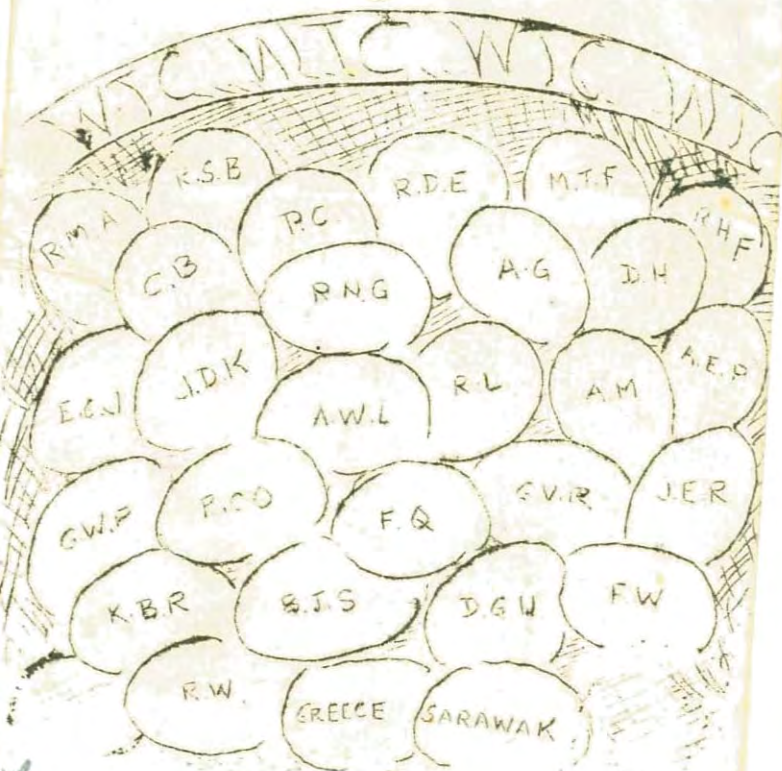 WJC WJC WJC WJC
K.S.B
R.D.E
M.T.F
R.M.A
P.C.
R.H.F
C.B
R.N.G
A.G
D.H
E.C.J
J.D.K
A.W.L
R.L
A.M
A.E.P
G.W.P
P.C.O
F.Q
G.V.R
J.E.R
K.B.R
S.J.S
D.G.W
F.W
R.W.
GREECE
SARAWAK